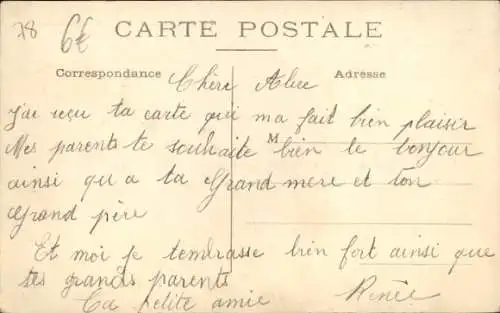 78 6€
CARTE POSTALE
Correspondance Adresse
Chère Alice
J'ai reçu ta carte qui ma fait bien plaisir
M
Mes parents te souhaite bien le bonjour
ainsi qu a ta Grand mere et ton
Grand père
Et moi je tembrasse bien fort ainsi que
tes grands parents
Ta petite amie Renée